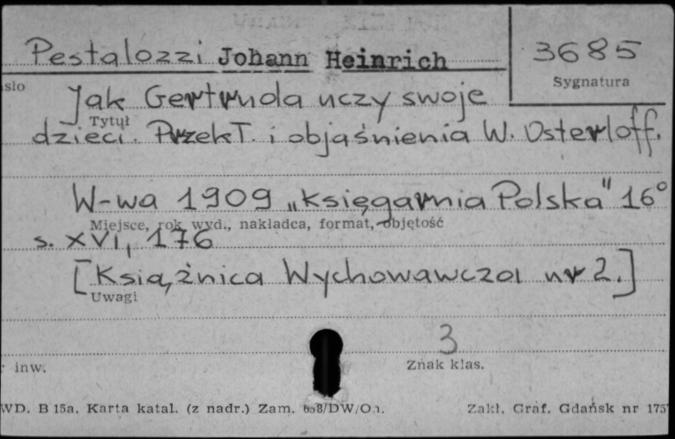 Pestalozzi Johann Heinrich 3685
Sygnatura
Jak Gertruda uczy swoje
Tytuł
dzieci. Przekł. i objaśnienia W. Osterloff.
W-wa 1909 „Księgarnia Polska" 16°
Miejsce, rok wyd., nakładca, format, objętość
s. XVI, 176
[Książnica Wychowawcza nr 2.]
Uwagi
3
inw. Znak klas.
WD. B 15a. Karta katal. (z nadr.) Zam. /DW/ Zakł. Graf. Gdańsk nr 175